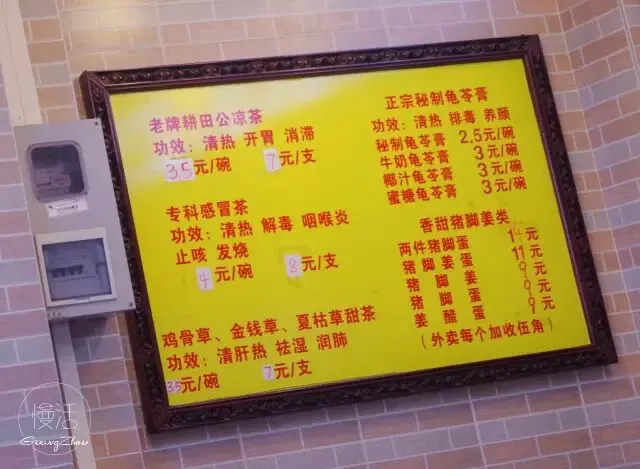 老牌耕田公凉茶
功效：清热 开胃 消滞
35元/碗 7元/支
专科感冒茶
功效：清热 解毒 咽喉炎
止咳 发烧
4元/碗 8元/支
鸡骨草、金钱草、夏枯草甜茶
功效：清肝热 祛湿 润肺
35元/碗 7元/支
正宗秘制龟苓膏
功效：清热 排毒 养颜
秘制龟苓膏 2.5元/碗
牛奶龟苓膏 3元/碗
椰汁龟苓膏 3元/碗
蜜糖龟苓膏 3元/碗
香甜猪脚姜类
两件猪脚蛋 14元
猪脚姜蛋 11元
猪脚姜 9元
猪脚蛋 9元
姜醋蛋 9元
（外卖每个加收伍角）
慢活
GuangZhou